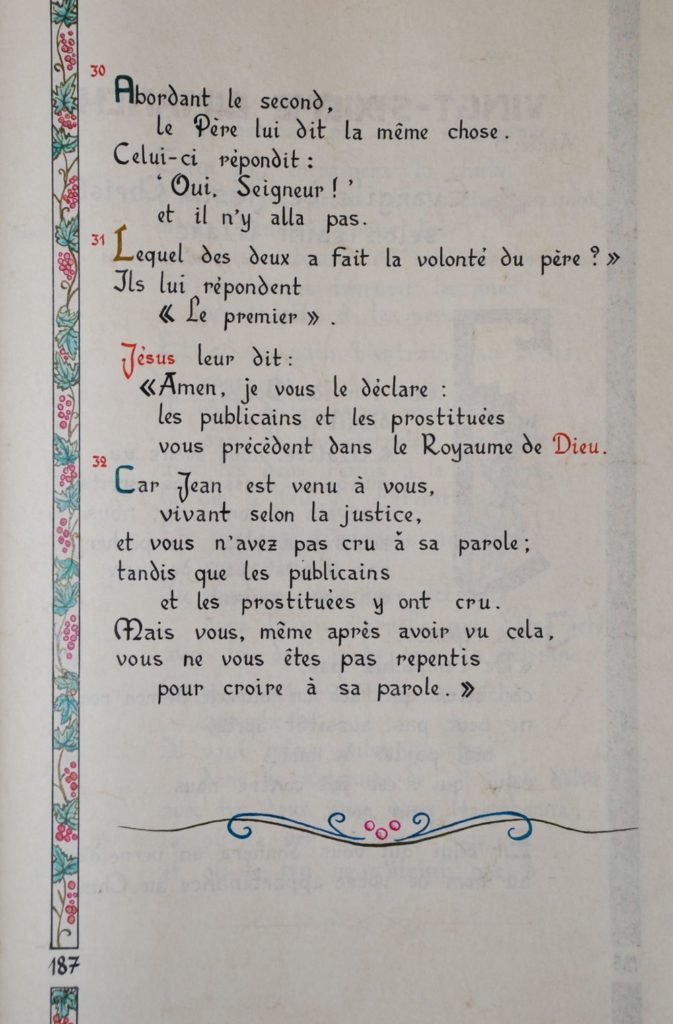 30
Abordant le second,
le Père lui dit la même chose.
Celui-ci répondit :
‘ Oui, Seigneur ! ’
et il n'y alla pas.
31
Lequel des deux a fait la volonté du père ? »
Ils lui répondent
« Le premier » .
Jésus leur dit :
« Amen, je vous le déclare :
les publicains et les prostituées
vous précèdent dans le Royaume de Dieu.
32
Car Jean est venu à vous,
vivant selon la justice,
et vous n'avez pas cru à sa parole ;
tandis que les publicains
et les prostituées y ont cru.
Mais vous, même après avoir vu cela,
vous ne vous êtes pas repentis
pour croire à sa parole. »
187